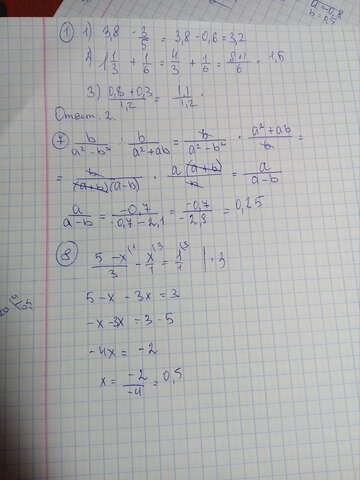 ① 1) 3,8 - 3/5 = 3,8 - 0,6 = 3,2
2) 1 1/3 + 1/6 = 4/3 + 1/6 = 8+1/6 = 1,5
3) 0,8 + 0,3 / 1,2 = 1,1 / 1,2
Ответ: 2.
⑦ b / a² - b² : b / a² + ab = b / a² - b² · a² + ab / b =
= b / (a+b)(a-b) · a (a+b) / b = a / a-b
a / a-b = -0,7 / -0,7 - 2,1 = -0,7 / -2,8 = 0,25
⑧ 5-x / 3 - x / 1 = 1 / 1 | · 3
5 - x - 3x = 3
-x - 3x = 3 - 5
-4x = -2
x = -2 / -4 = 0,5